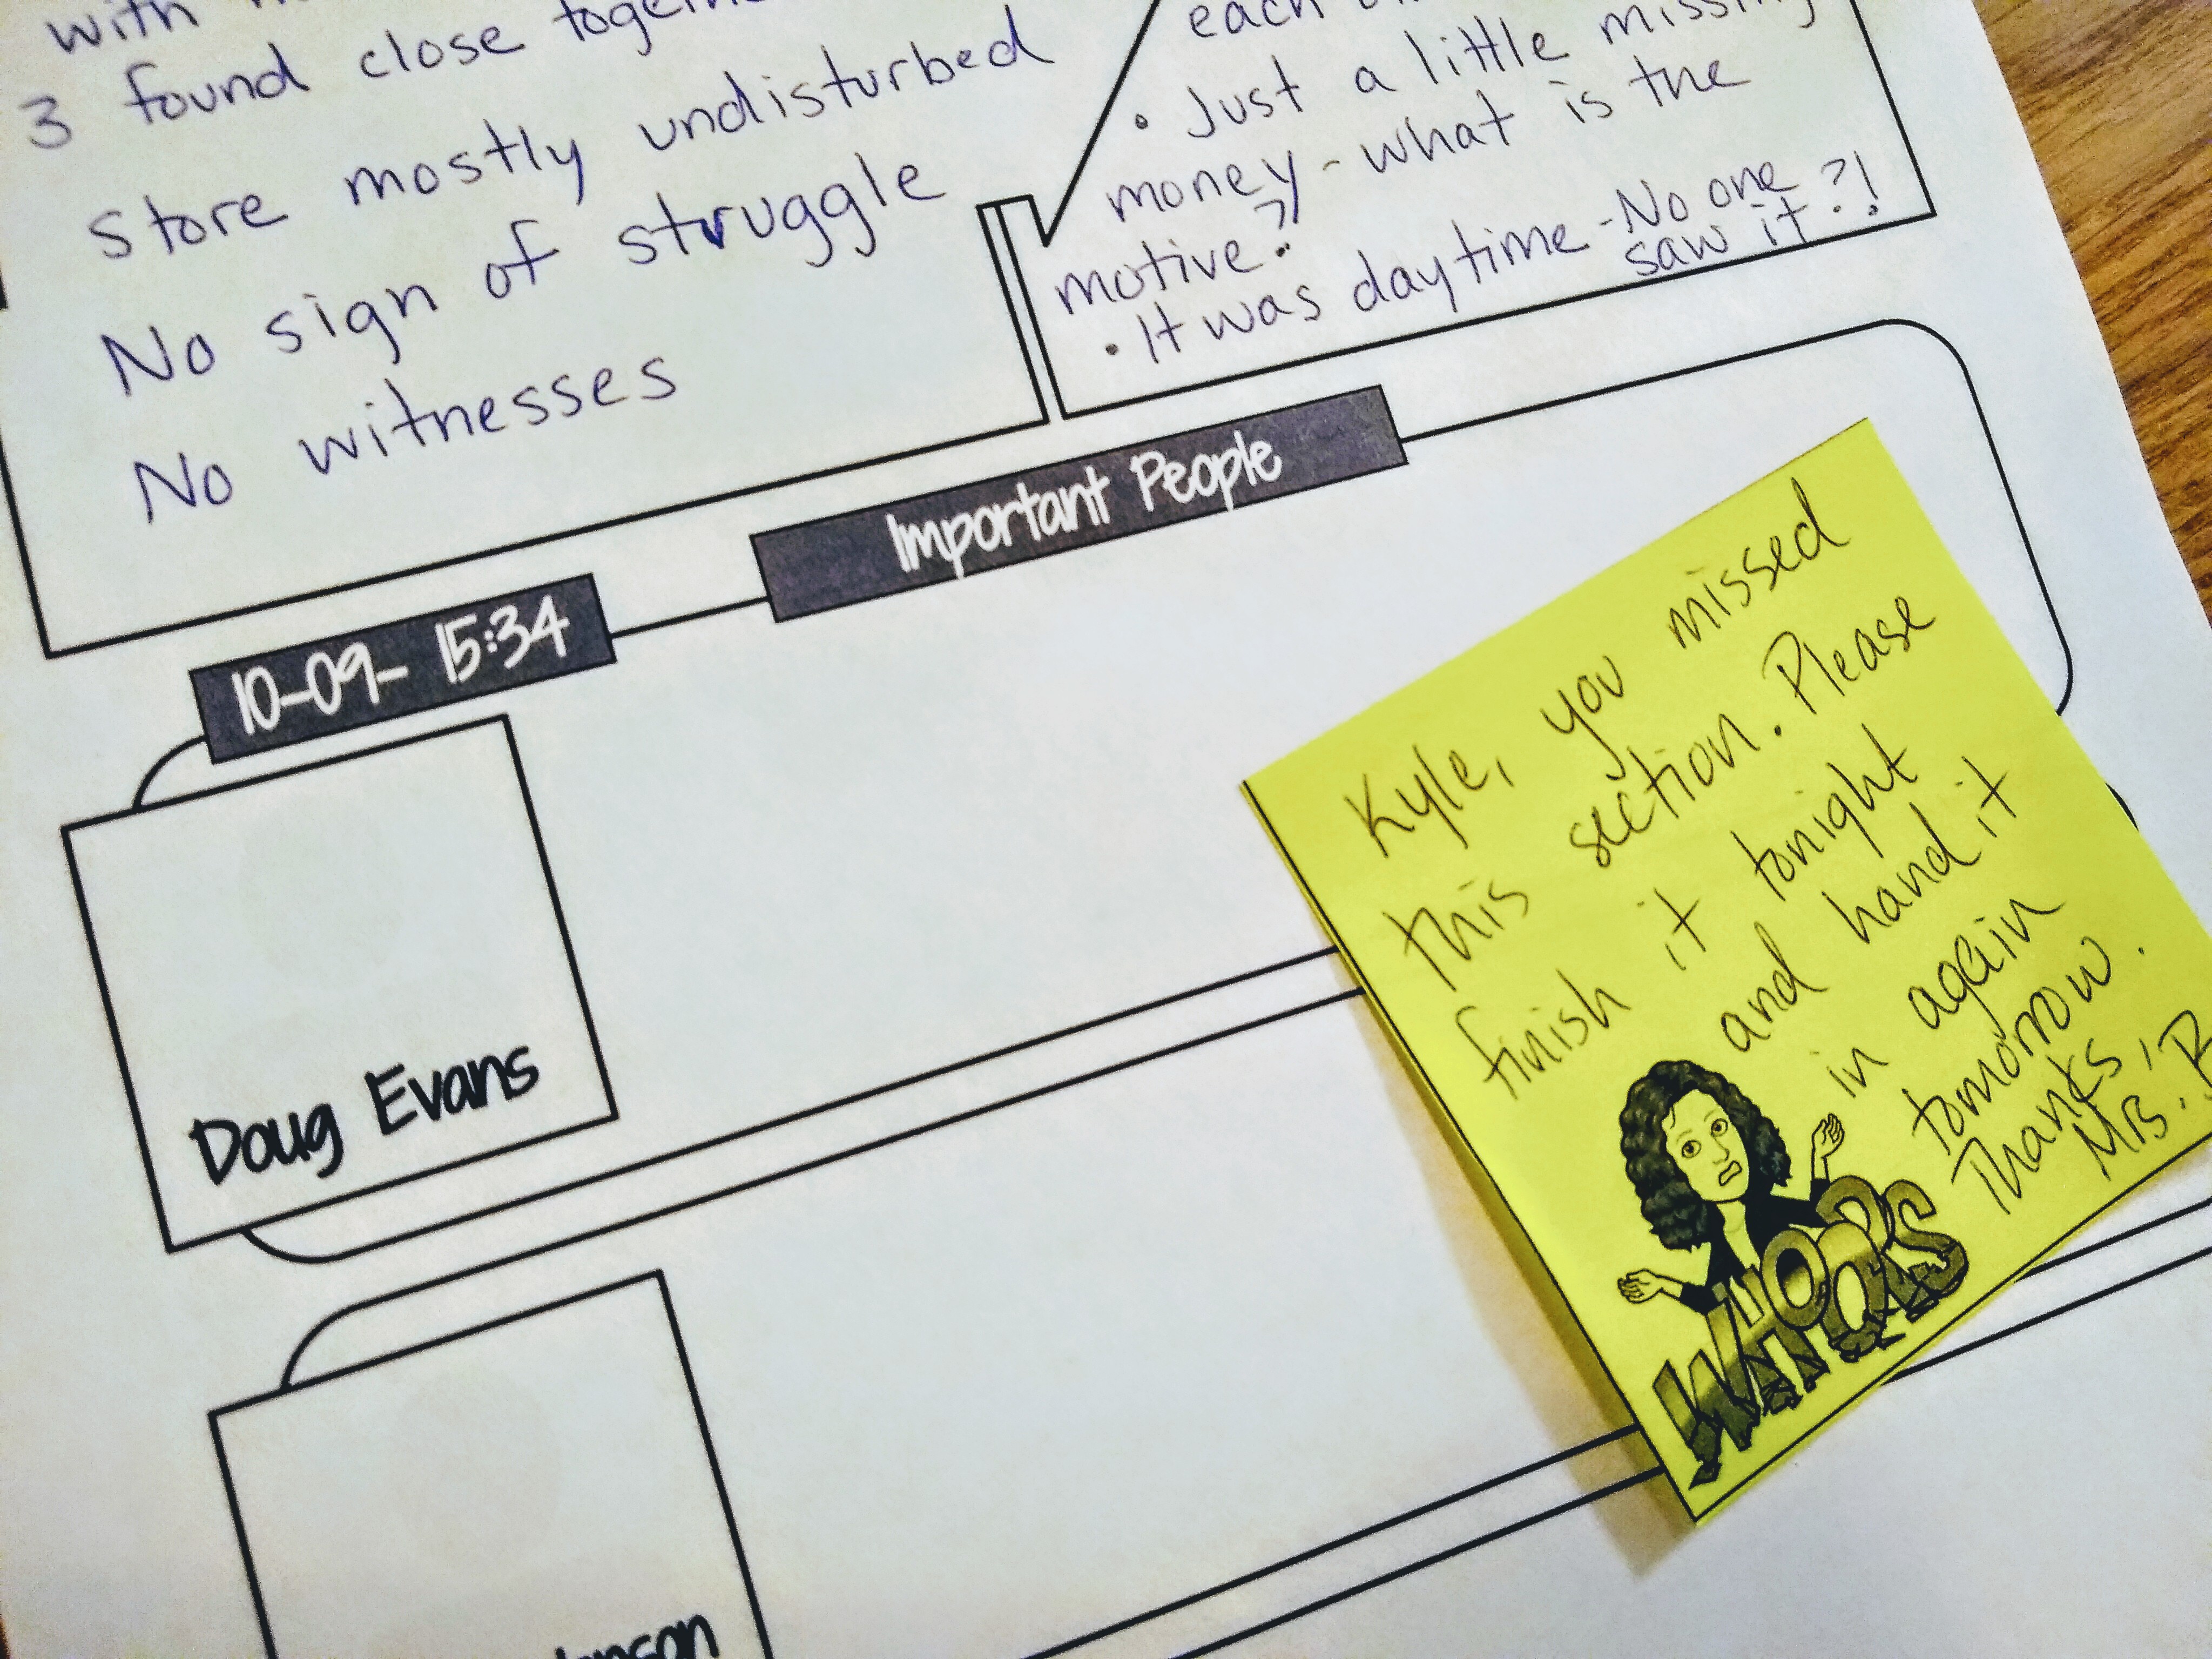 with
3 found close
Store mostly undisturbed
No sign of struggle
No witnesses
each
• Just a little missing
money - what is the
motive?
• It was daytime - No one
saw it?!
Important People
10-09- 15:34
Doug Evans
Kyle, you missed
this section. Please
finish it tonight
and hand it
in again
tomorrow.
Thanks,
Mrs.
WHOOPS